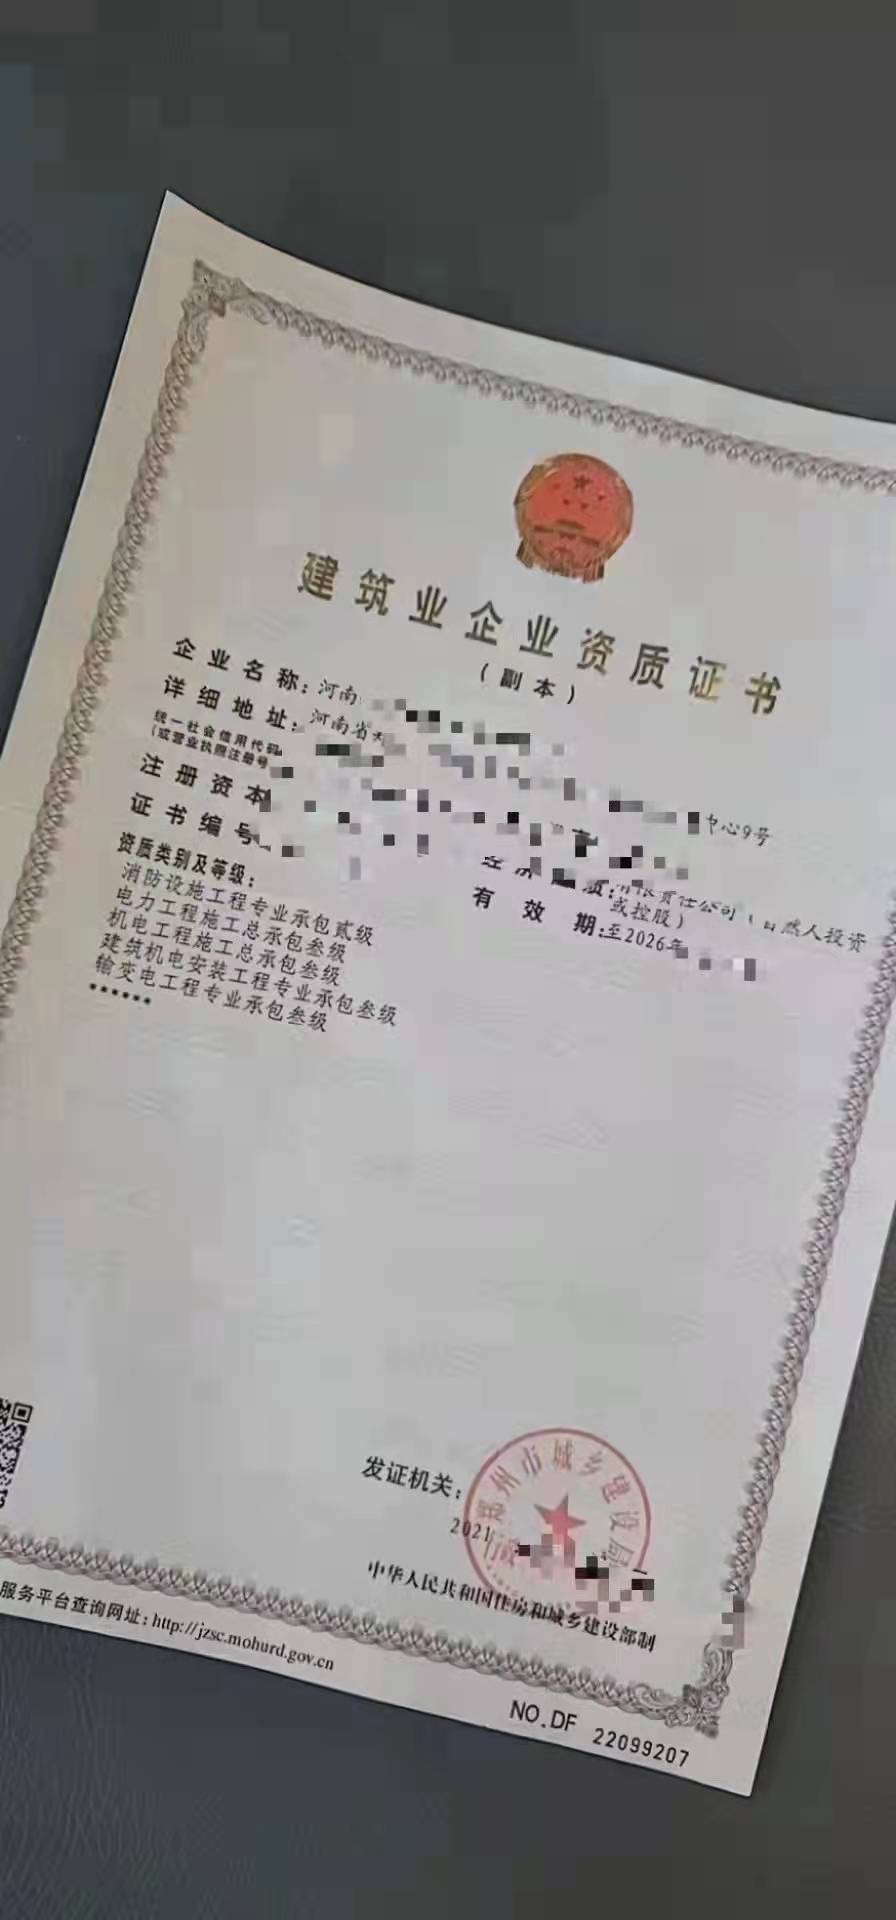 建筑业企业资质证书
（副本）
企业名称：河南
详细地址：河南省
中心9号
统一社会信用代码
（或营业执照注册号
注册资本
证书编号
质：有限责任公司（自然人投资
或控股）
有效期：至2026年
资质类别及等级：
消防设施工程专业承包贰级
电力工程施工总承包叁级
机电工程施工总承包叁级
建筑机电安装工程专业承包叁级
输变电工程专业承包叁级
******
发证机关：
州市城乡建设局
2021
中华人民共和国住房和城乡建设部制
服务平台查询网址：http://jzsc.mohurd.gov.cn
NO.DF 22099207